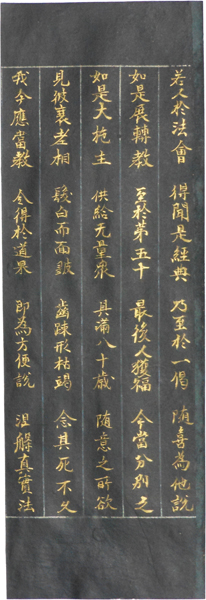 若人於法會 得聞是經典 乃至於一偈 隨喜為他說
如是展轉教 至於第五十 最後人獲福 今當分別之
如是大施主 供給无量衆 具滿八十歲 隨意之所欲
見彼衰老相 髮白而面皺 齒踈形枯竭 念其死不久
我今應當教 令得於道果 即為方便說 涅槃真實法